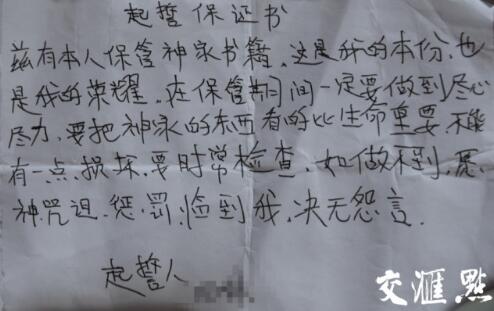 起誓保证书
兹有本人保管神家书籍.这是我的本份.也
是我的荣耀.在保管期间一定要做到尽心
尽力.要把神家的东西看的比生命重要.不能
有一点.损坏.要时常检查.如做不到.愿.
神咒诅.惩.罚.临到我.决无怨言.
起誓人
交汇點